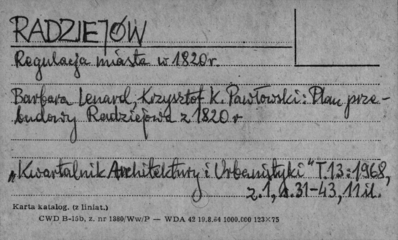 RADZIEJÓW
Regulacja miasta w 1820r.
Barbara Lenard, Krzysztof K. Pawłowski: Plan prze-
budowy Radziejowa z 1820 r
„Kwartalnik Architektury i Urbanistyki" T.13:1968,
z.1, s.31-43, 11 il.
Karta katalog. (z liniat.)
CWD B-15b, z. nr 1389/Ww/P — WDA 42 19.8.64 1000.000 123×75